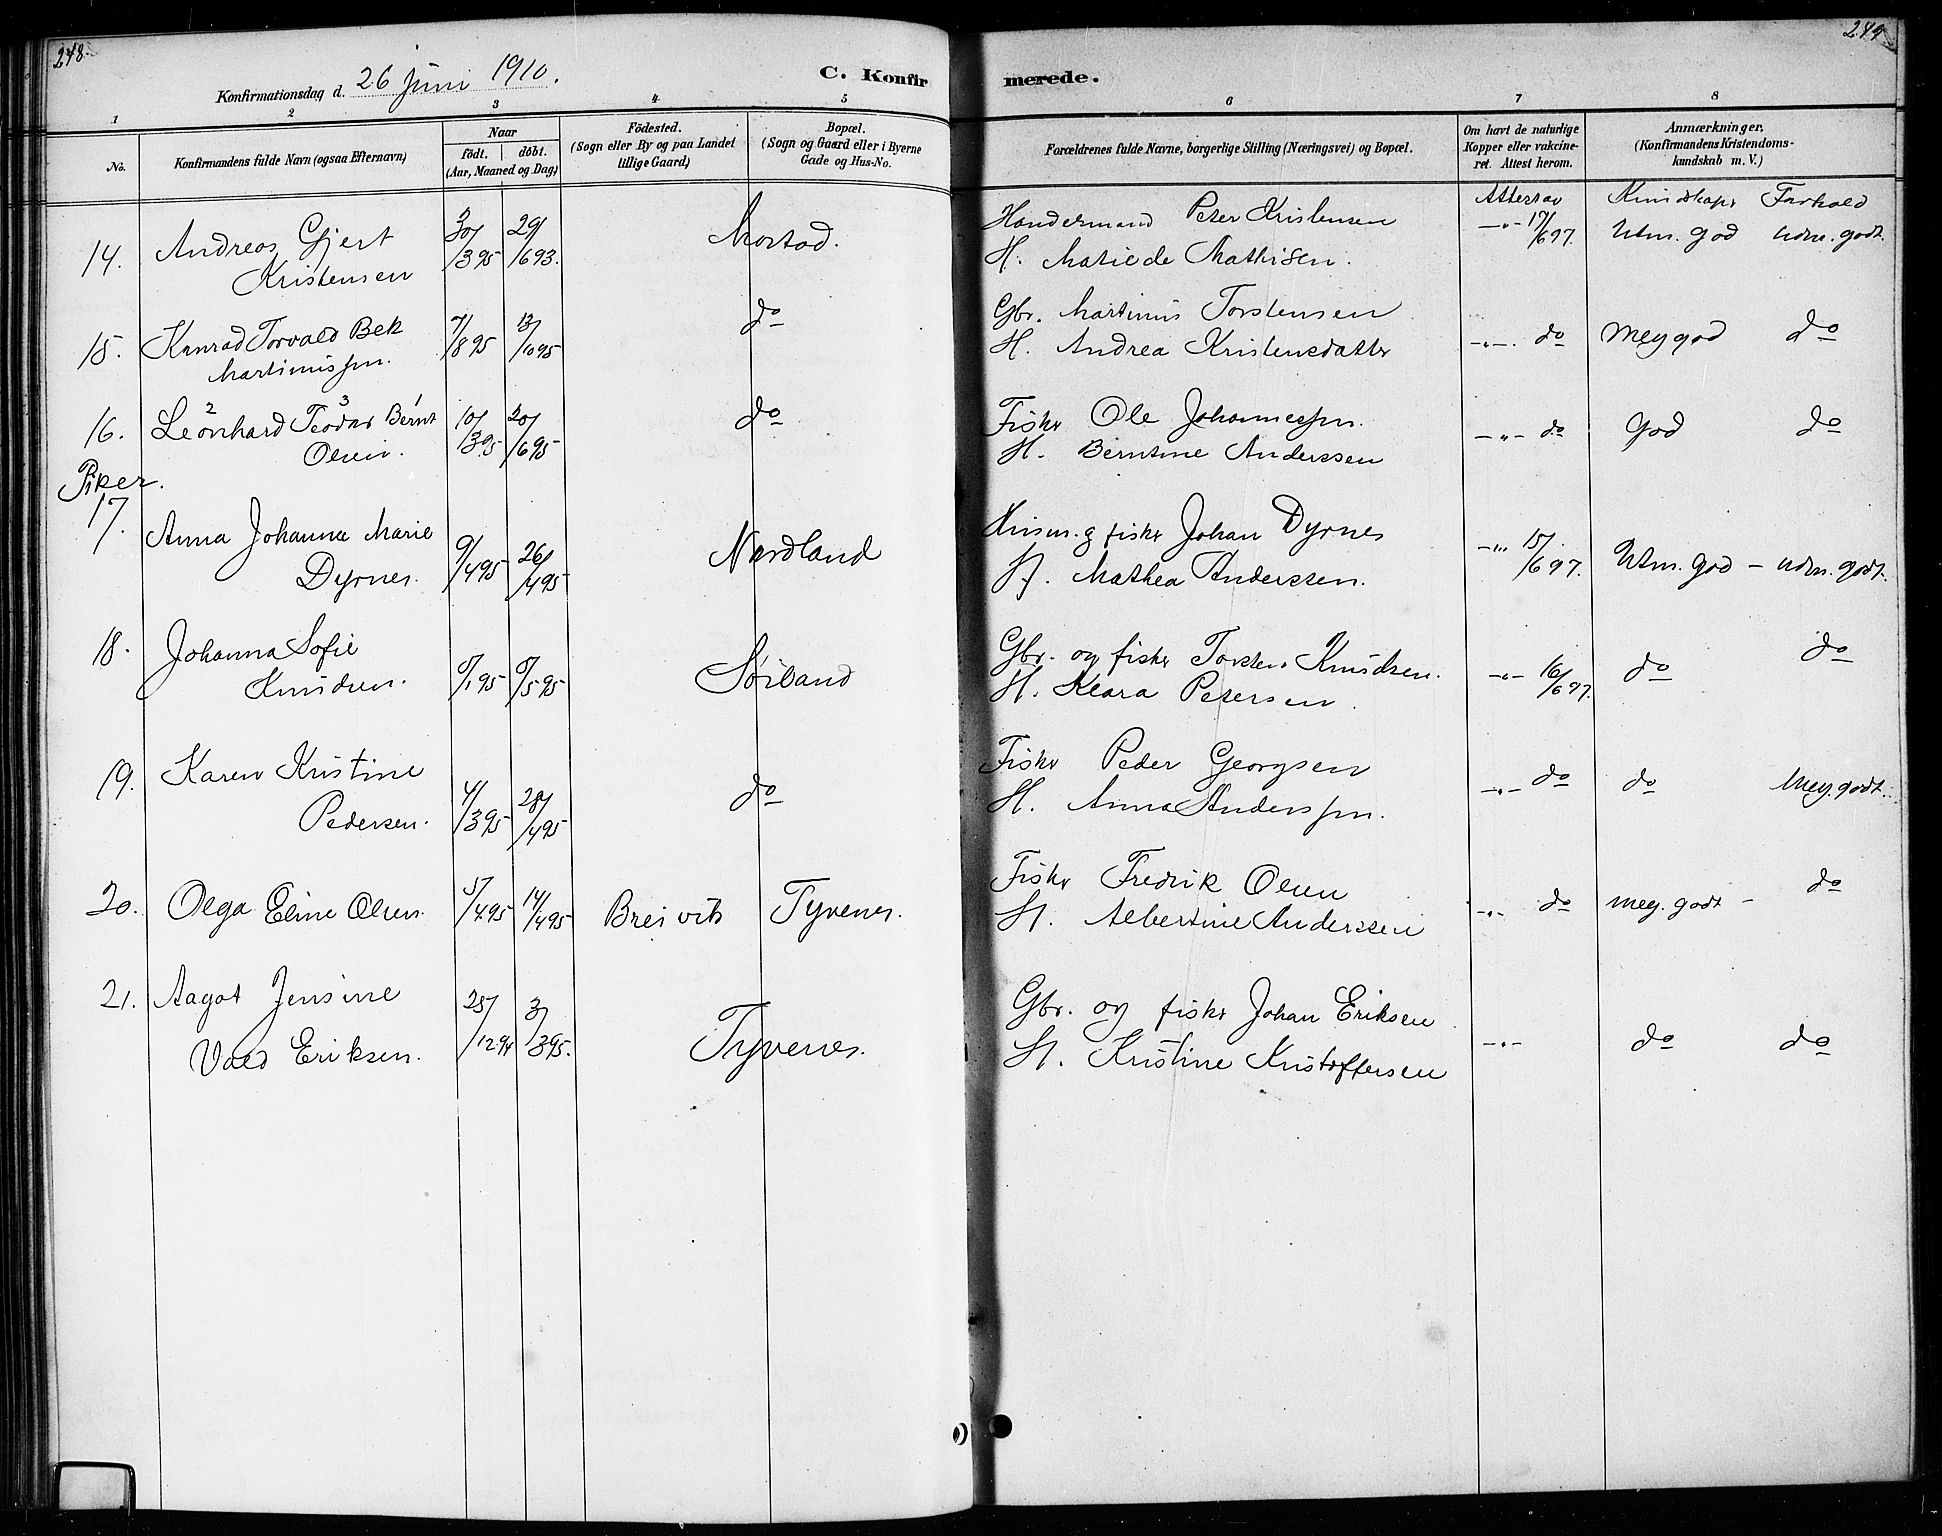 248.
249
Konfirmationsdag d. 26 Juni 1910.
C. Konfirmerede.
1 2 3 4 5 6 7 8
No.
Konfirmandens fulde Navn (ogsaa Efternavn)
Naar
födt. | döbt.
(Aar, Maaned og Dag)
Födested.
(Sogn eller By og paa Landet
tillige Gaard)
Bopæl.
(Sogn og Gaard eller i Byerne
Gade og Hus-No.
Forældrenes fulde Navne, borgerlige Stilling (Næringsvei) og Bopæl.
Om havt de naturlige
Kopper eller vakcine-
ret. Attest herom.
Anmærkninger,
(Konfirmandens Kristendoms-
kundskab m. V.)
Attest av Kundskaper Forhold
14. Andreas Gjert 30/3 95 29/6 93. Mostad. Handelsmand Peter Kristensen —"— 17/6 97. Utm. god udm. godt.
Kristensen H. Matilde Mathisen.
15. Konrad Torvald Bek 7/8 95 13/10 95 do Gbr. Martinus Torstensen
Martinussen. H. Andrea Kristensdatter —"— do Meg god do
16. Leonhard 2 Teodor 3 Bernt 1 10/3 95 20/6 95 do Fisker Ole Johannessen. —"— do God do
Olsen. H. Berntine Anderssen
Piker.
17. Anna Johanna Marie 9/4 95 26/4 95 Nordland Husm. og fisker Johan Dyrnes —"— 15/6 97. Utm. god — udm. godt.
Dyrnes. H. Mathea Anderssen.
18. Johanna Sofie 9/1 95 9/5 95 Sörland Gbr. og fisker Torsten Knudsen. —"— 16/6 97. do do
Knudsen. H. Klara Petersen.
19. Karen Kristine 4/3 95 28/4 95 do Fisker Peder Georgsen —"— do do Meg. godt.
Pedersen. H. Anna Anderssen.
20. Olga Eline Olsen. 5/4 95 14/4 95 Breivik Tyvenes. Fisker Fredrik Olsen —"— do meg. godt — do
H. Albertine Anderssen
21. Aagot Jensine 28/12 94 3/3 95. Tyvenes. Gbr. og fisker Johan Eriksen —"— do do
Vold Eriksen. H. Kristine Kristoffersen